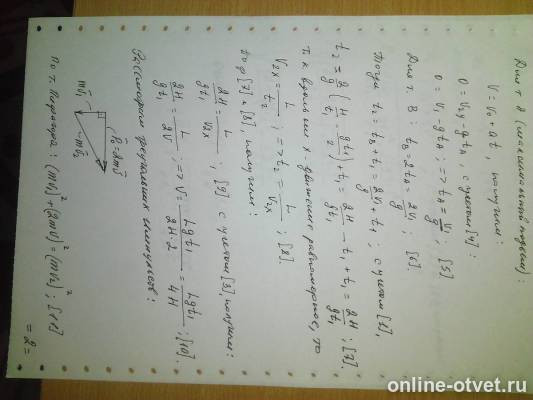 Для т. А (максимальный подъём):
V = V₀ + at, получим:
0 = V₁y - gtA, с учётом [4]:
0 = V₁ - gtA; => tA = V₁/g; [5]
Для т. B: tB = 2tA = 2V₁/g; [6].
Тогда t₂ = tB + t₁ = 2V₁/g + t₁; с учётом [2],
t₂ = 2/g (H/t₁ - gt₁/2) + t₁ = 2H/gt₁ - t₁ + t₁ = 2H/gt₁; [7].
т.к. вдоль оси x - движение равномерное, то
V₂x = L/t₂; => t₂ = L/V₂x; [8].
[7] = [8], получим:
2H/gt₁ = L/V₂x; [9] с учётом [3], получим:
2H/gt₁ = L/2V; => V = Lgt₁/2H·2 = Lgt₁/4H; [10].
Рассмотрим треугольник импульсов:
mV₁
P₂ = 2mV
mV₂
По т. Пифагора: (mV₁)² + (2mV)² = (mV₂)²; [11]
= 2 =
online-otvet.ru